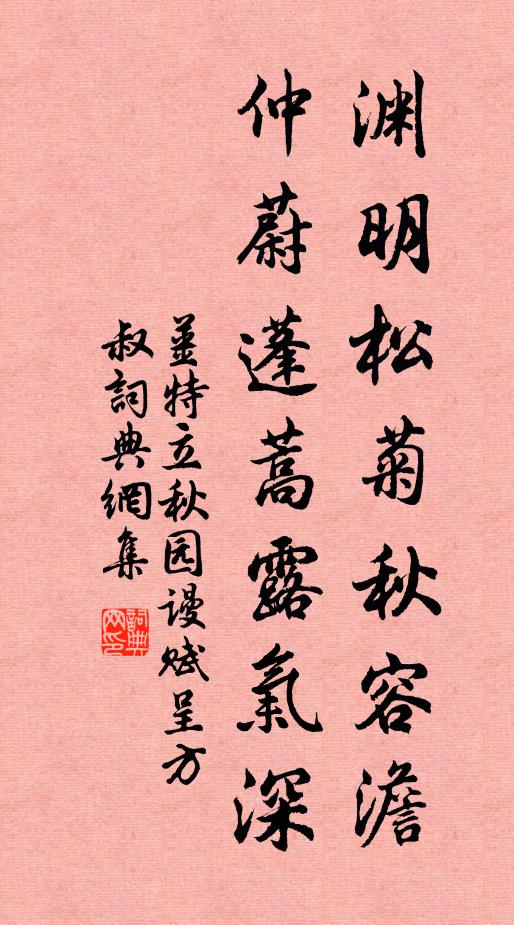 渊明松菊秋容澹
仲蔚蓬蒿露氣深
姜特立秋园谩赋呈方
叔詞典網集
詞典網印